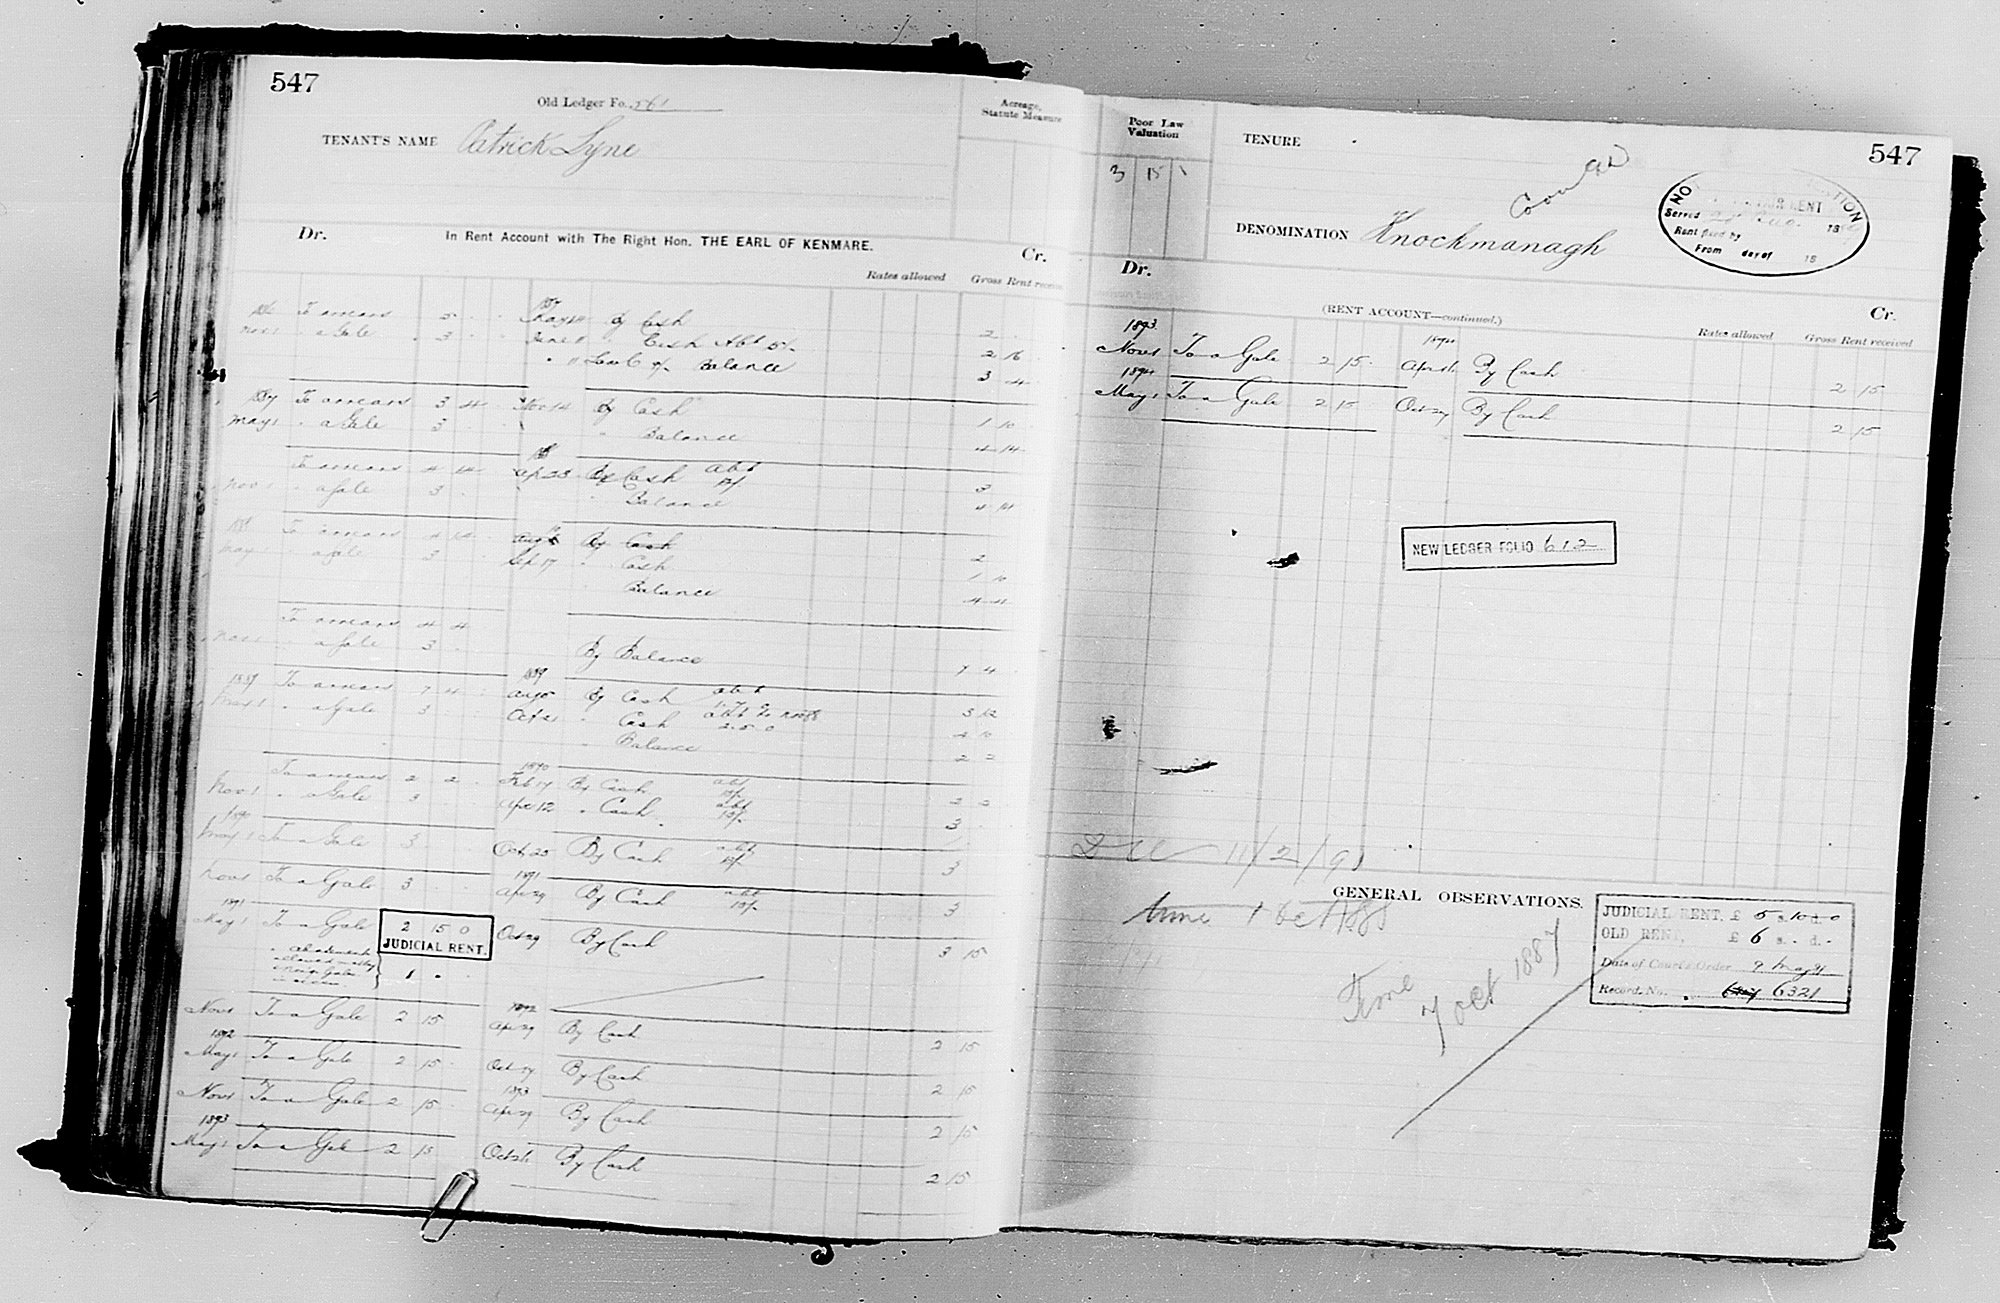 547
Old Ledger Fo. 561
Acreage, Statute Measure
TENANT'S NAME Patrick Lyne
Dr. In Rent Account with The Right Hon. THE EARL OF KENMARE. Cr.
Rates allowed Gross Rent received
1886 To arrears 5 1887 May 14 By Cash 2
Nov 1 " a Gale 3 June 11 " Cash Abt 5/- 2 16
" 11 Balance 3 4
1887 To arrears 3 4 Nov 14 By Cash 1 10
May 1 " a Gale 3 " Balance 4 14
To arrears 4 14 Ap 23 By Cash abt 3
Nov 1 " a Gale 3 " Balance 4 14
To arrears 4 14 By Cash 2
May 1 " a Gale 3 Sep 17 " Cash 1 10
Balance 4 4
To arrears 4 4
Nov 1 " a Gale 3 By Balance 7 4
1889 To arrears 7 4 1889 Aug 5 By Cash abt 3 12
May 1 " a Gale 3 Oct 21 " Cash 2.5.0
" Balance 2 2
To arrears 2 2 1890 Feb 17 By Cash abt 2 2
Nov 1 " a Gale 3 Apl 12 " Cash abt 3
1890
May 1 To a Gale 3 Oct 25 By Cash abt 3
Nov 1 To a Gale 3 1891 Ap 29 By Cash abt 3
1891
May 1 To a Gale 2 15 0 Oct 29 By Cash 3 15
JUDICIAL RENT.
" Abatement
1
Nov 1 To a Gale 2 15 1892 Ap 29 By Cash 2 15
1892
May 1 To a Gale 2 15 Oct 17 By Cash 2 15
Nov 1 To a Gale 2 15 1893 Ap 29 By Cash 2 15
1893
May 1 To a Gale 2 15 Oct 26 By Cash 2 15
Poor Law Valuation
3 15
TENURE
547
DENOMINATION Knockmanagh
Served
Rent fixed by
From day of 18
Dr. (RENT ACCOUNT—continued.) Cr.
Rates allowed Gross Rent received
1893 1894
Nov 1 To a Gale 2 15 By Cash 2 15
1894
May 1 To a Gale 2 15 Oct 27 By Cash 2 15
NEW LEDGER FOLIO 612
11/2/91
GENERAL OBSERVATIONS.
Time 1 Oct 1888
Time
7 Oct 1887
JUDICIAL RENT, £ 5 s. 10 d. 0
OLD RENT, £ 6 s. - d. -
Date of Court's Order 9 May 91
Record. No. 6321